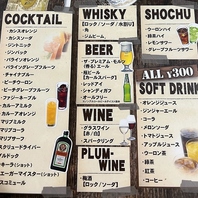 COCKTAIL
・カシスオレンジ
・カシスソーダ
・ジントニック
・ジンバック
・パインオレンジ
・パイングレープフルーツ
・チャイナブルー
・ピーチウーロン
・ピーチグレープフルーツ
・ファジーネーブル
・カルーアミルク
・カルーアオレンジ
・マリブミルク
・マリブコーラ
・マリブオレンジ
スクリュードライバー
・キール
WHISKY
【ロック/ソーダ/水割り】
・角
・ジムビーム
BEER
・ザ・プレミアム・モルツ
・瓶ビール
・レッドアイ
・シャンディガフ
・オールフリー
WINE
・グラスワイン
【赤/白】
・スパークリング
PLUM-
WINE
・梅酒
【ロック/ソーダ】
SHOCHU
・ウーロンハイ
・緑茶ハイ
・レモンサワー
・グレープフルーツサワー
ALL ¥300
SOFT DRINK
・オレンジジュース
・ジンジャーエール
・コーラ
・メロンソーダ
・トマトジュース
・アップルジュース
・ウーロン茶
・緑茶
・紅茶
・コーヒー